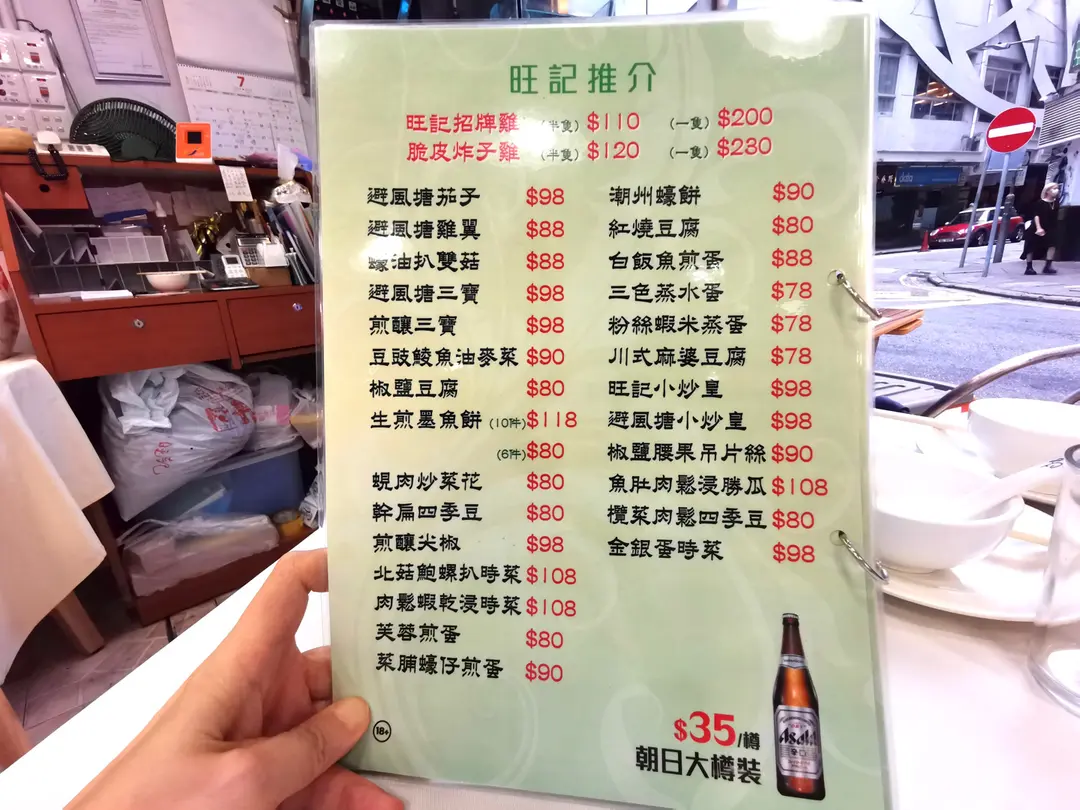 旺記推介
旺記招牌雞 (半隻) $110 (一隻) $200
脆皮炸子雞 (半隻) $120 (一隻) $230
避風塘茄子 $98
避風塘雞翼 $88
蠔油扒雙菇 $88
避風塘三寶 $98
煎釀三寶 $98
豆豉鯪魚油麥菜 $90
椒鹽豆腐 $80
生煎墨魚餅 (10件) $118
(6件) $80
蜆肉炒菜花 $80
幹扁四季豆 $80
煎釀尖椒 $98
北菇鮑螺扒時菜 $108
肉鬆蝦乾浸時菜 $108
芙蓉煎蛋 $80
菜脯蠔仔煎蛋 $90
潮州蠔餅 $90
紅燒豆腐 $80
白飯魚煎蛋 $88
三色蒸水蛋 $78
粉絲蝦米蒸蛋 $78
川式麻婆豆腐 $78
旺記小炒皇 $98
避風塘小炒皇 $98
椒鹽腰果吊片絲 $90
魚肚肉鬆浸勝瓜 $108
欖菜肉鬆四季豆 $80
金銀蛋時菜 $98
18+
$35/樽
朝日大樽裝
Asahi
7